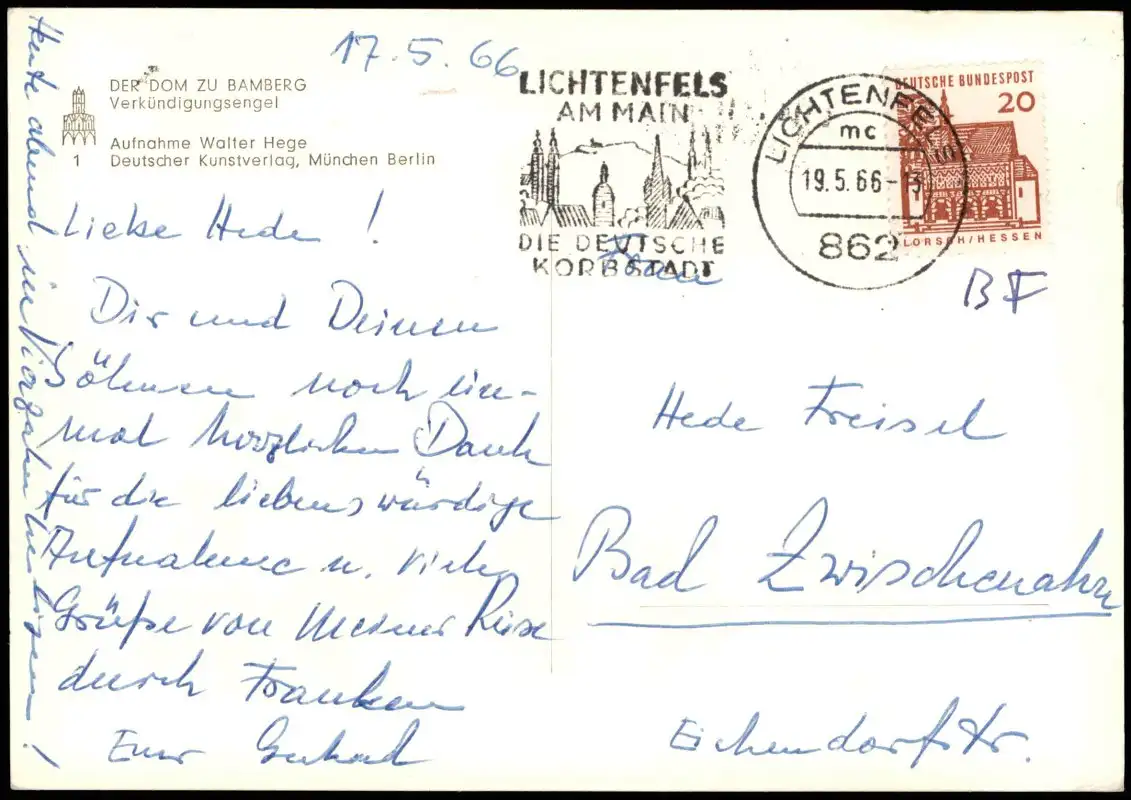 17.5.66
DER DOM ZU BAMBERG
Verkündigungsengel
1
Aufnahme Walter Hege
Deutscher Kunstverlag, München Berlin
Liebe Hede!
Dir und Deinen
Söhnen noch ein-
mal herzlichen Dank
für die liebenswürdige
Aufnahme u. viele
Grüße von meiner Reise
durch Franken
Euer
Heute abend in Vierzehnheiligen!
LICHTENFELS
AM MAIN
DIE DEUTSCHE
KORBSTADT
LICHTENFELS
mc
19.5.66-13
862
DEUTSCHE BUNDESPOST
20
LORSCH/HESSEN
BF
Frau
Hede Freisel
Bad Zwischenahn
Eichendorfstr.